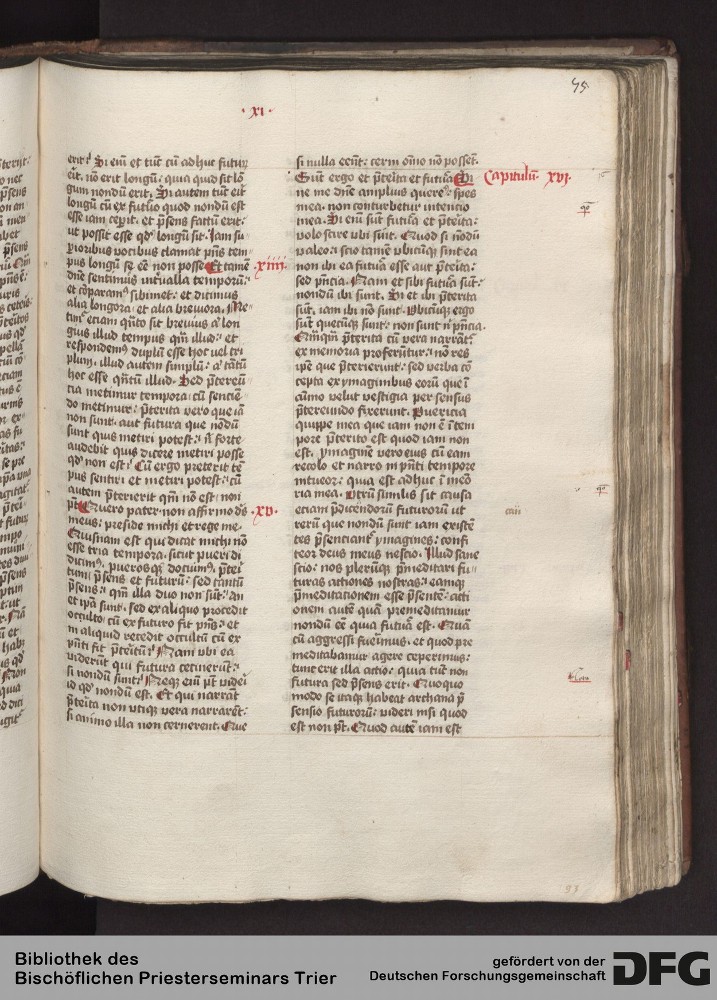 45
·XI·
erit? Si em̄ et tūc cū adhuc futurꝰ
ēit. nō erit longū: quia quid sit lō
gum nondū erit. Si autem tūc eīt
longū cū ex futūo quod nondū est
esse iam cepīt. et p̄sens factū erit:
ut possit esse qd̓ longū sit. Iam su
perioribus vocibus clamat p̄ns tem
pus longū se eē non posse Et tamē
·xiiii·
dn̄e sentimus int̓ualla temporū:
et cōparamꝰ sibimet: et dicimus
alia longiora et alia breuiora. Me
timꝰ etiam quāto sit breuius aut lon
gius illud tempus quā illud: et
respondemꝰ duplū esse hoc vel tri
plum. illud autem simplū: aut tātū
hoc esse quātū illud. Sed p̄tereū
tia metimur tempora cū sencien
do metimur: p̄terita vero que iā
non sunt. aut futura que nōdū
sunt quis metiri potest: nisi forte
audebit quis dicere metiri posse
qd̓ non est? Cū ergo preterit tē
pus sentiri et metiri potest: cū
autem p̄terierit qm̄ nō est: non
pt̄. Quero pater non affirmo dꝰs
·xv·
meus: preside michi et rege me.
Quisnam est qui dicat michi nō
esse tria tempora. sicut pueri di
dicimꝰ. puerosque docuimꝰ. p̄teri
tum p̄sens et futurū: sed tantū
p̄sens: qm̄ illa duo non sūt. An
et ip̄a sunt. sed ex aliquo procedit
occulto cū ex futuro fit p̄ns: et
in aliquid recedit occultū cū ex
p̄nti fit p̄teritū? Nam vbi ea
viderūt qui futura cecinerūt:
si nondū sunt? Neque em̄ pt̄ videri
id qd̓ nondū est. Et qui narrāt
p̄terita non vtique vera narrarēt:
si animo illa non cernerent. Que
si nulla eēnt: cerni om̄io nō possēt.
Sunt ergo et p̄terita et futura Si
Capitulū XVI
ne me dn̄e amplius querere spes
mea. non conturbetur intencio
mea. Si em̄ sūt futura et p̄terita:
volo scire vbi sūnt. Quod si nōdū
valeo: scio tamē vbicūque sunt ea
non ibi ea futura esse aut p̄terita:
sed p̄ncia. Nam et si ibi futura sūt:
nondū ibi sunt. Si et ibi p̄terita
sūt. iam ibi nō sunt. Vbicūque ergo
sūt quecūque sunt: non sunt nisi p̄ncia.
Quāquam p̄terita cū vera narrāt
ex memoria proferūtur: nō res
ipse que p̄terierunt: sed verba cō
cepta ex ymaginibus eorū que ī
animo velut vestigia per sensus
p̄tereundo fixerunt. Puericia
quippe mea que iam non ē ī tem
pore p̄terito est quod iam non
est. ymaginē vero eius cū eam
recolo et narro in p̄nti tempore
intueor: quia est adhuc ī memo
ria mea. Vtrū similis sit causa
etiam p̄dicendorū futurorū ut
cau
rerū que nondū sunt iam existē
tes p̄senciant ymagines: confi
teor deus meus nescio. Illud sane
scio: nos plerūque p̄meditari fu
turas actiones nostras: eamque
p̄meditationem esse p̄sentē: acti
onem autē quā premeditamur
nondū eē quia futura est. Quā
cū aggressi fuerimus. et quod pre
meditabamur agere ceperimus:
tunc erit illa actio: quia tūc non
futura sed p̄sens erit. Quoquo
modo se itaque habeat archana p̄
sensio futurorū: videri nisi quod
est non pt̄. Quod autē iam est
93
Bibliothek des
Bischöflichen Priesterseminars Trier
gefördert von der
Deutschen Forschungsgemeinschaft
DFG